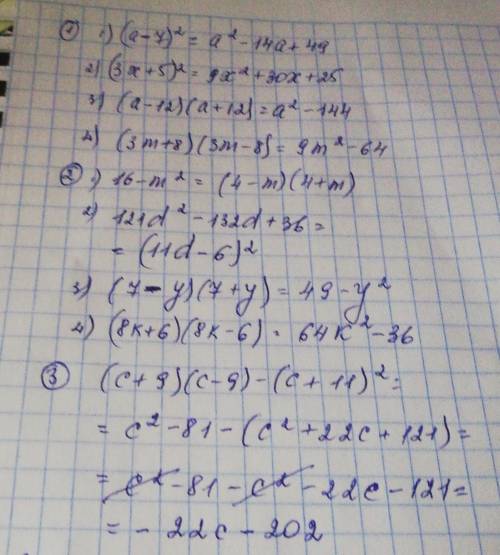 ① 1) (a-7)² = a² - 14a + 49
2) (3x+5)² = 9x² + 30x + 25
3) (a-12)(a+12) = a² - 144
4) (3m+8)(3m-8) = 9m² - 64
② 1) 16 - m² = (4-m)(4+m)
2) 121d² - 132d + 36 =
= (11d - 6)²
3) (7-y)(7+y) = 49 - y²
4) (8k+6)(8k-6) = 64k² - 36
③ (c+9)(c-9) - (c+11)² =
= c² - 81 - (c² + 22c + 121) =
= c² - 81 - c² - 22c - 121 =
= - 22c - 202